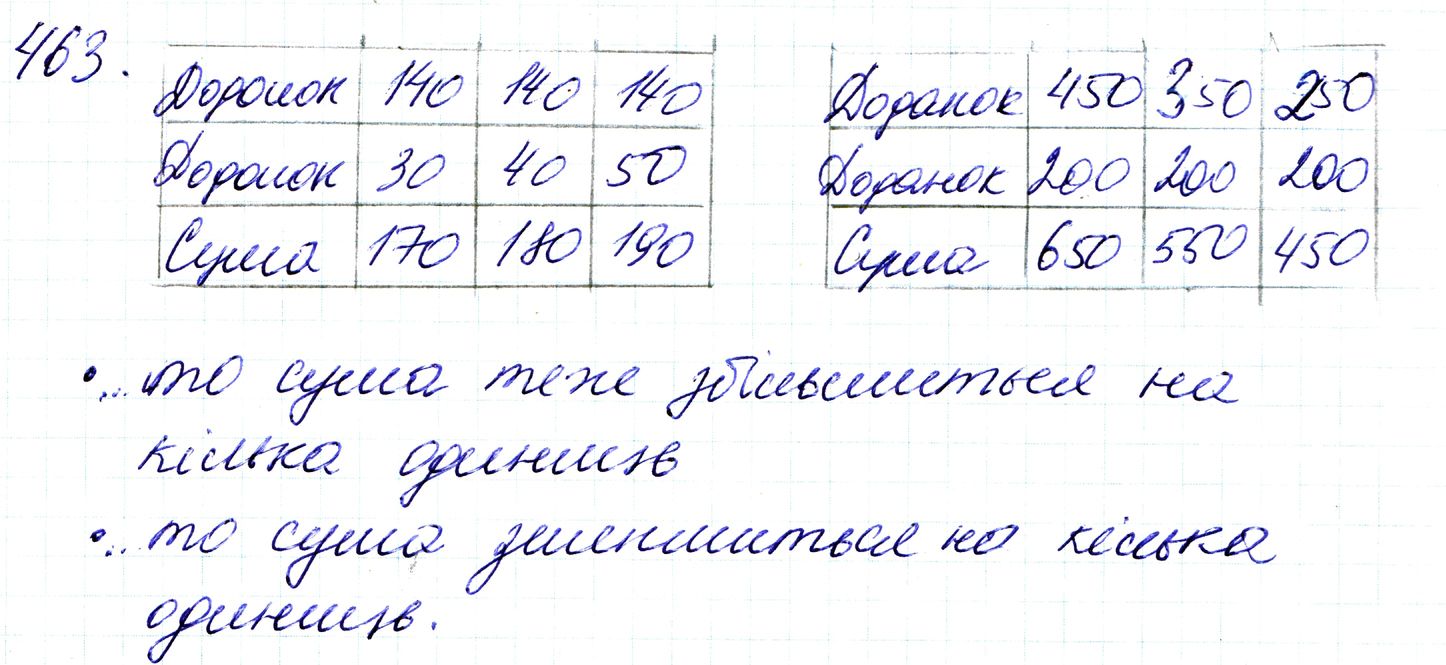 463.
Доданок 140 140 140
Доданок 30 40 50
Сума 170 180 190
Доданок 450 350 250
Доданок 200 200 200
Сума 650 550 450
• ... то сума теж збільшиться на
кілька одиниць
• ... то сума зменшиться на кілька
одиниць.